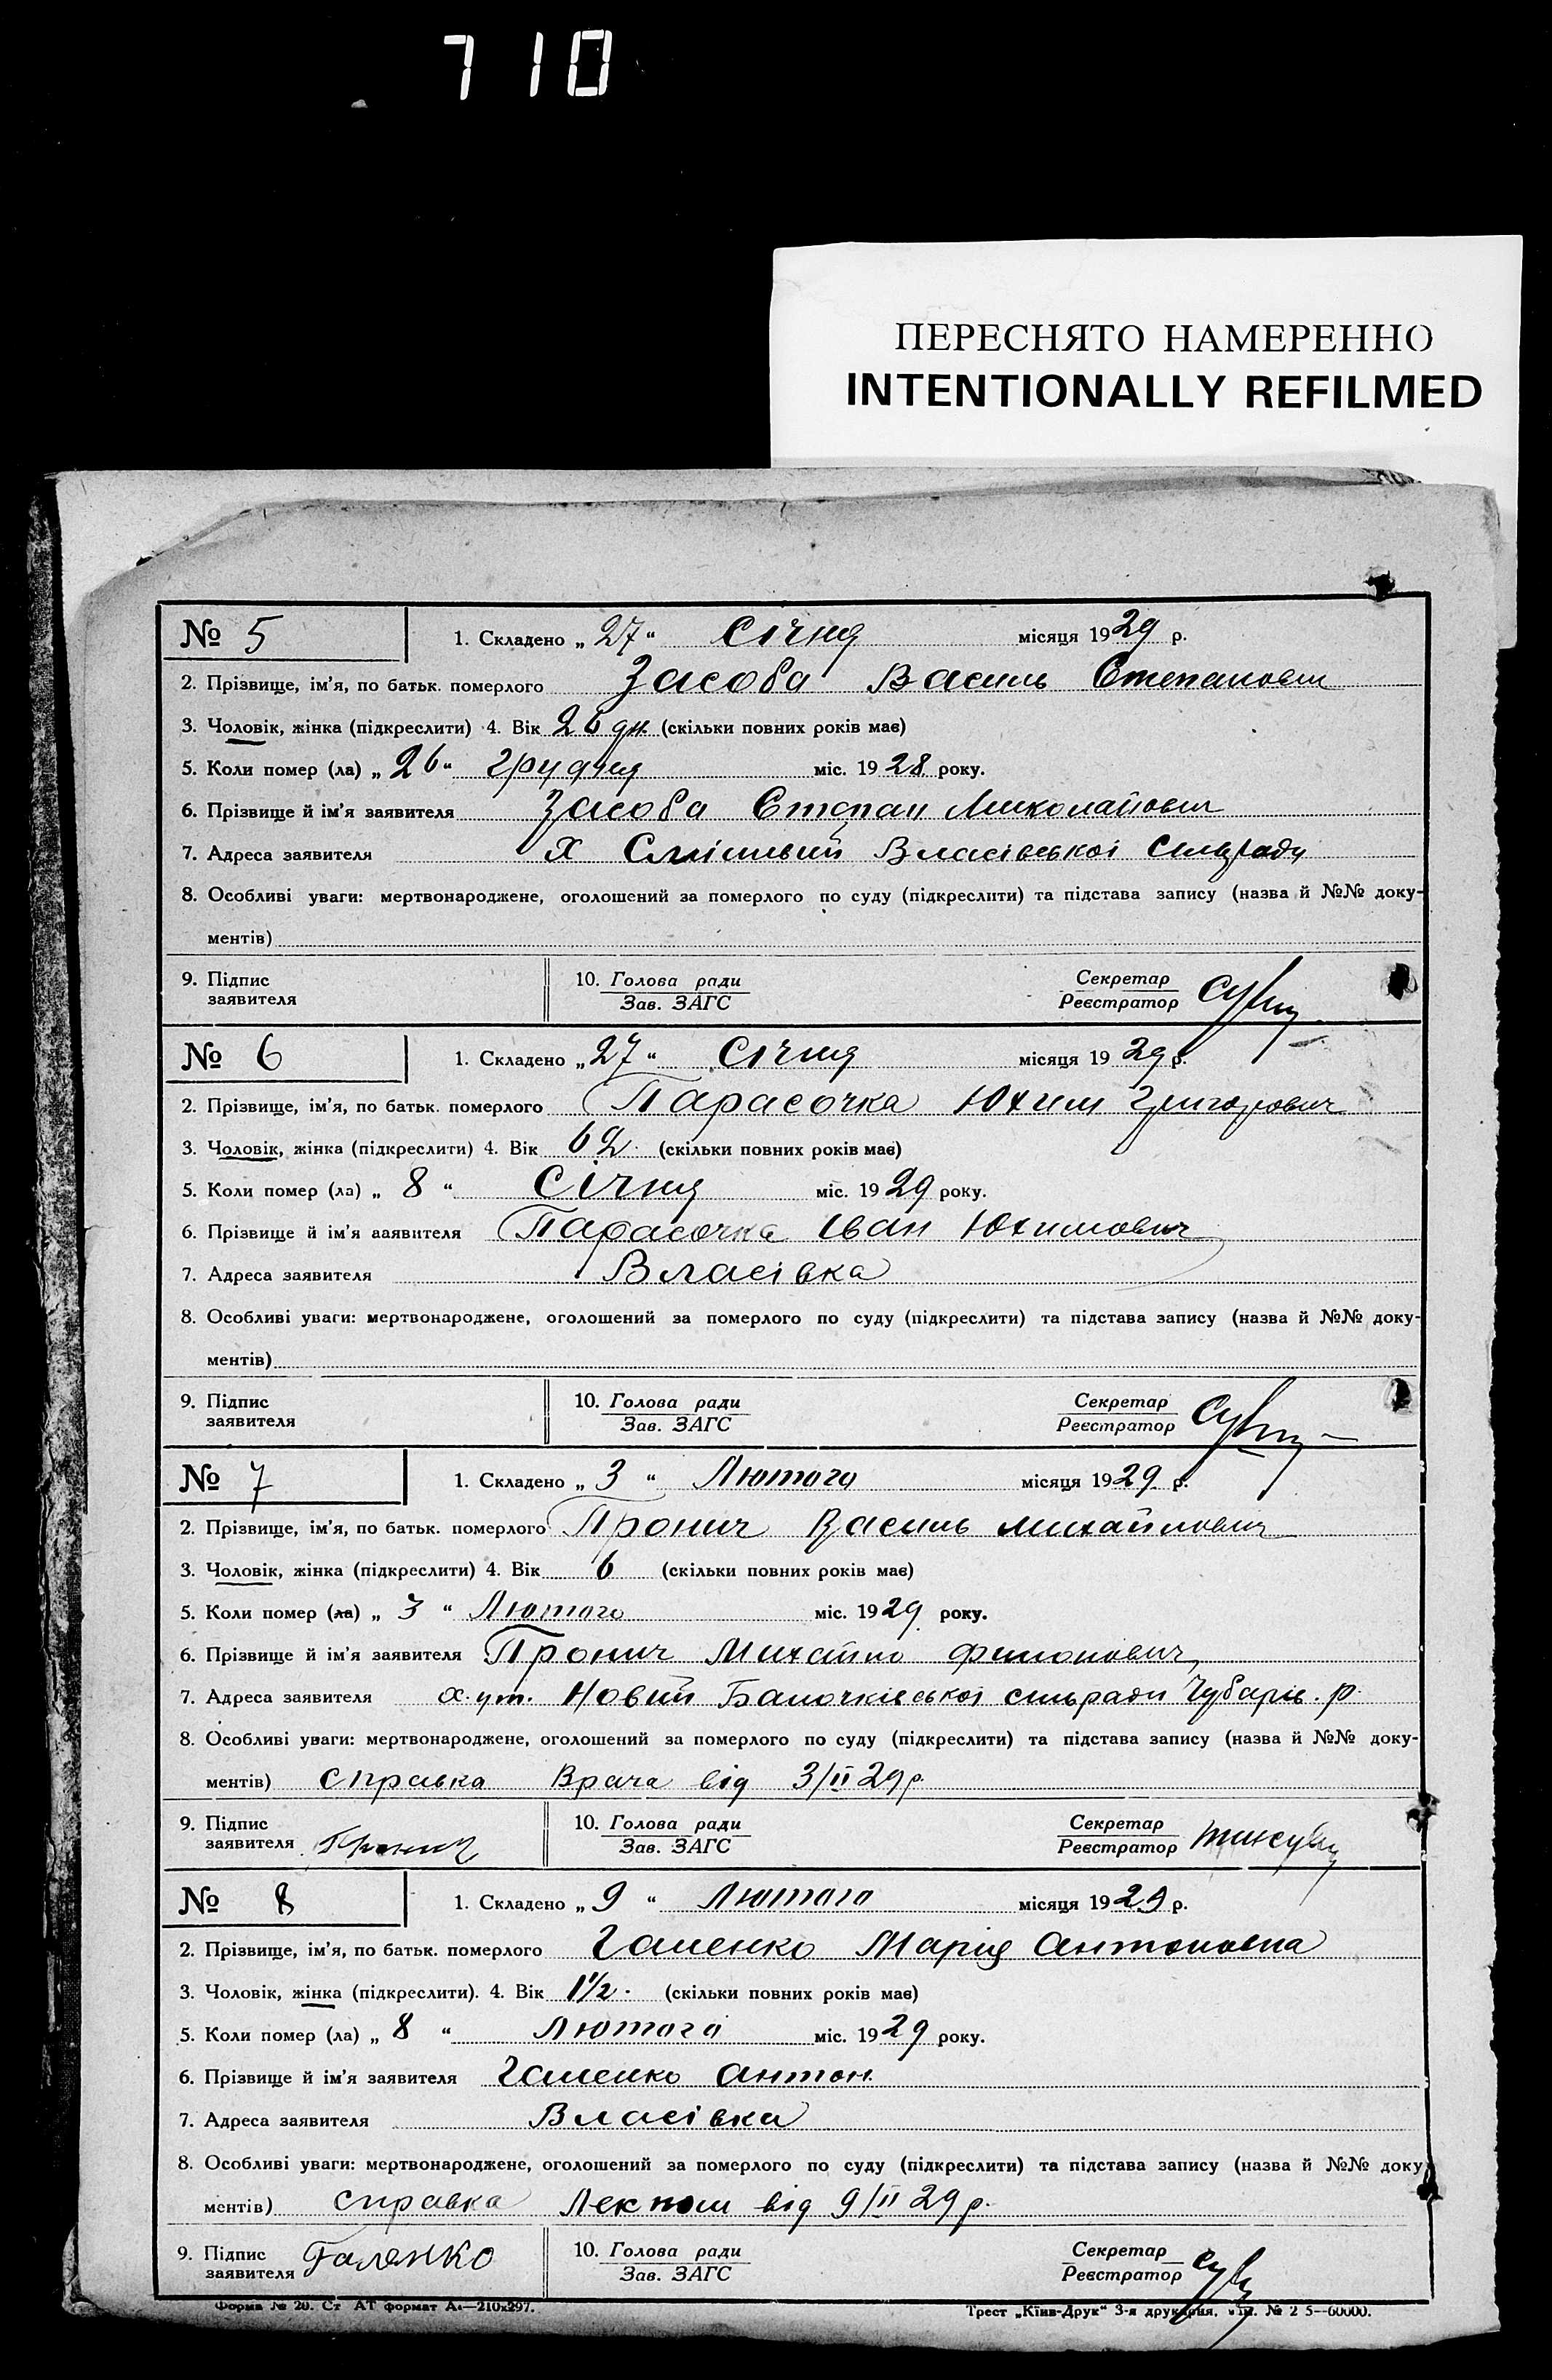 710
ПЕРЕСНЯТО НАМЕРЕННО
INTENTIONALLY REFILMED
№ 5 1. Складено „27“ Січня місяця 1929 р.
2. Прізвище, ім'я, по батьк. померлого Засоба Василь Степанович
3. Чоловік, жінка (підкреслити) 4. Вік 26 дн. (скільки повних років має)
5. Коли помер (ла) „26“ грудня міс. 1928 року.
6. Прізвище й ім'я заявителя Засоба Степан Миколайович
7. Адреса заявителя Х Власівської Сільради
8. Особливі уваги: мертвонароджене, оголошений за померлого по суду (підкреслити) та підстава запису (назва й №№ доку-
ментів)
9. Підпис заявителя 10. Голова ради Зав. ЗАГС Секретар Реєстратор
№ 6 1. Складено „27“ Січня місяця 1929 р.
2. Прізвище, ім'я, по батьк. померлого Парасочка Юхим Григорович
3. Чоловік, жінка (підкреслити) 4. Вік 62. (скільки повних років має)
5. Коли помер (ла) „8“ Січня міс. 1929 року.
6. Прізвище й ім'я заявителя Парасочка Іван Юхимович
7. Адреса заявителя Власівка
8. Особливі уваги: мертвонароджене, оголошений за померлого по суду (підкреслити) та підстава запису (назва й №№ доку-
ментів)
9. Підпис заявителя 10. Голова ради Зав. ЗАГС Секретар Реєстратор
№ 7 1. Складено „3“ Лютого місяця 1929 р.
2. Прізвище, ім'я, по батьк. померлого Пронич Василь Михайлович
3. Чоловік, жінка (підкреслити) 4. Вік 6 (скільки повних років має)
5. Коли помер (ла) „3“ Лютого міс. 1929 року.
6. Прізвище й ім'я заявителя Пронич Михайло Филонович
7. Адреса заявителя хут. Новий Балочківської сільради Чубарів. р.
8. Особливі уваги: мертвонароджене, оголошений за померлого по суду (підкреслити) та підстава запису (назва й №№ доку-
ментів) справка Врача від 3/II 29 р.
9. Підпис заявителя Пронич 10. Голова ради Зав. ЗАГС Секретар Реєстратор
№ 8 1. Складено „9“ Лютого місяця 1929 р.
2. Прізвище, ім'я, по батьк. померлого Галенко Марія Антоновна
3. Чоловік, жінка (підкреслити). 4. Вік 1½. (скільки повних років має)
5. Коли помер (ла) „8“ Лютого міс. 1929 року.
6. Прізвище й ім'я заявителя Галенко Антон
7. Адреса заявителя Власівка
8. Особливі уваги: мертвонароджене, оголошений за померлого по суду (підкреслити) та підстава запису (назва й №№ доку
ментів) справка Лекпом від 9/II 29 р.
9. Підпис заявителя Галенко 10. Голова ради Зав. ЗАГС Секретар Реєстратор
Форма № 20. Ст АТ формат А₄—210х297. Трест „Київ-Друк“ 3-я друкарня, № 2 5—60000.